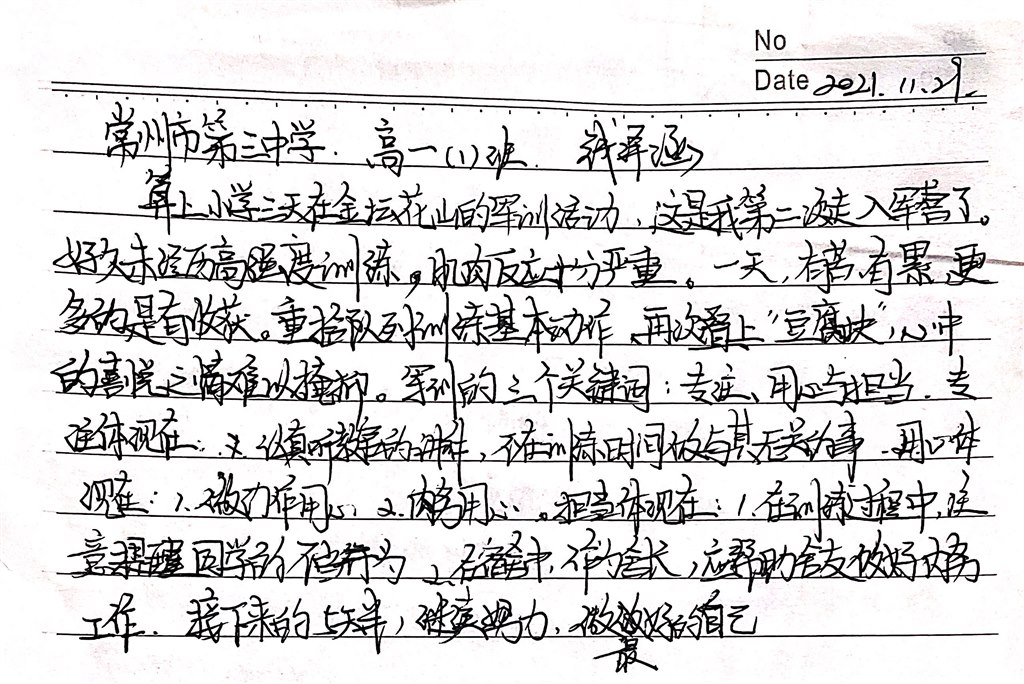 No
Date 2021.11.29.
常州市第三中学. 高一(1)班. 钱泽涵
算上小学三天在金坛花山的军训活动,这是我第二次走入军营了。
好久未经历高强度训练,肌肉反应十分严重。一天,有苦,有累,更
多的是有收获。重拾队列训练基本动作,再次看上"豆腐块",心中
的喜悦之情难以掩抑。军训的三个关键词:专注、用心与担当.专
注体现在:认真听教官的讲解,不在训练时间做与其无关的事.用心体
现在:1.做动作用心 2.内务用心。担当体现在:1.在训练过程中,注
意提醒同学的不当行为 2.在宿舍中,作为舍长,应帮助舍友做好内务
工作. 接下来的5天半,继续努力,做最好的自己